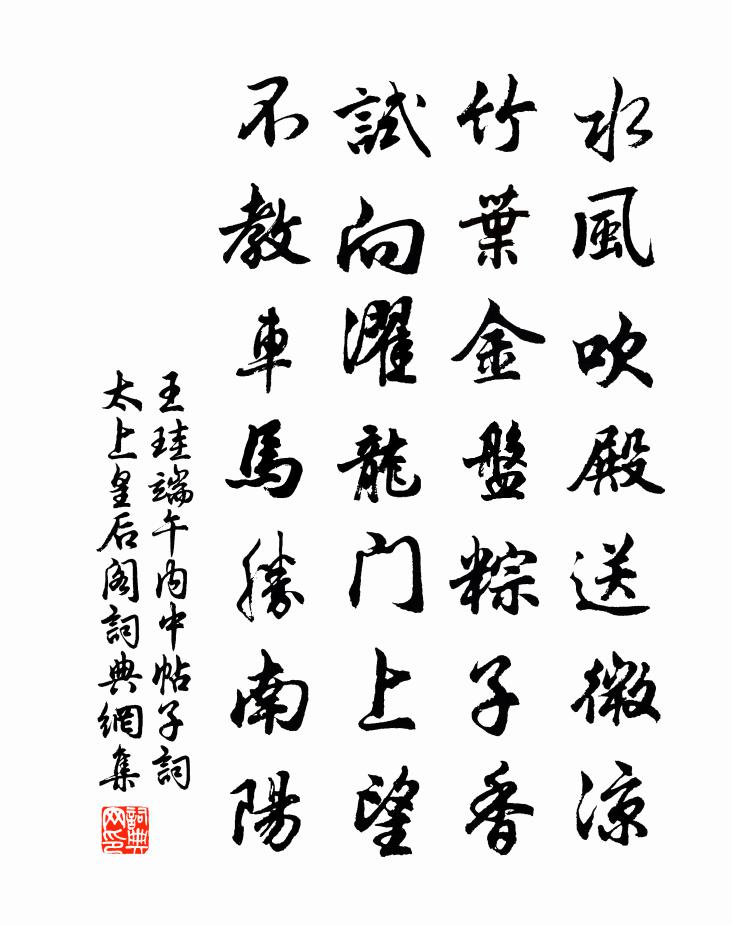 水風吹殿送微涼
竹葉金盤粽子香
試向濯龍门上望
不教車馬勝南陽
王珪端午内中帖子詞
太上皇后阁詞典網集
詞典网印